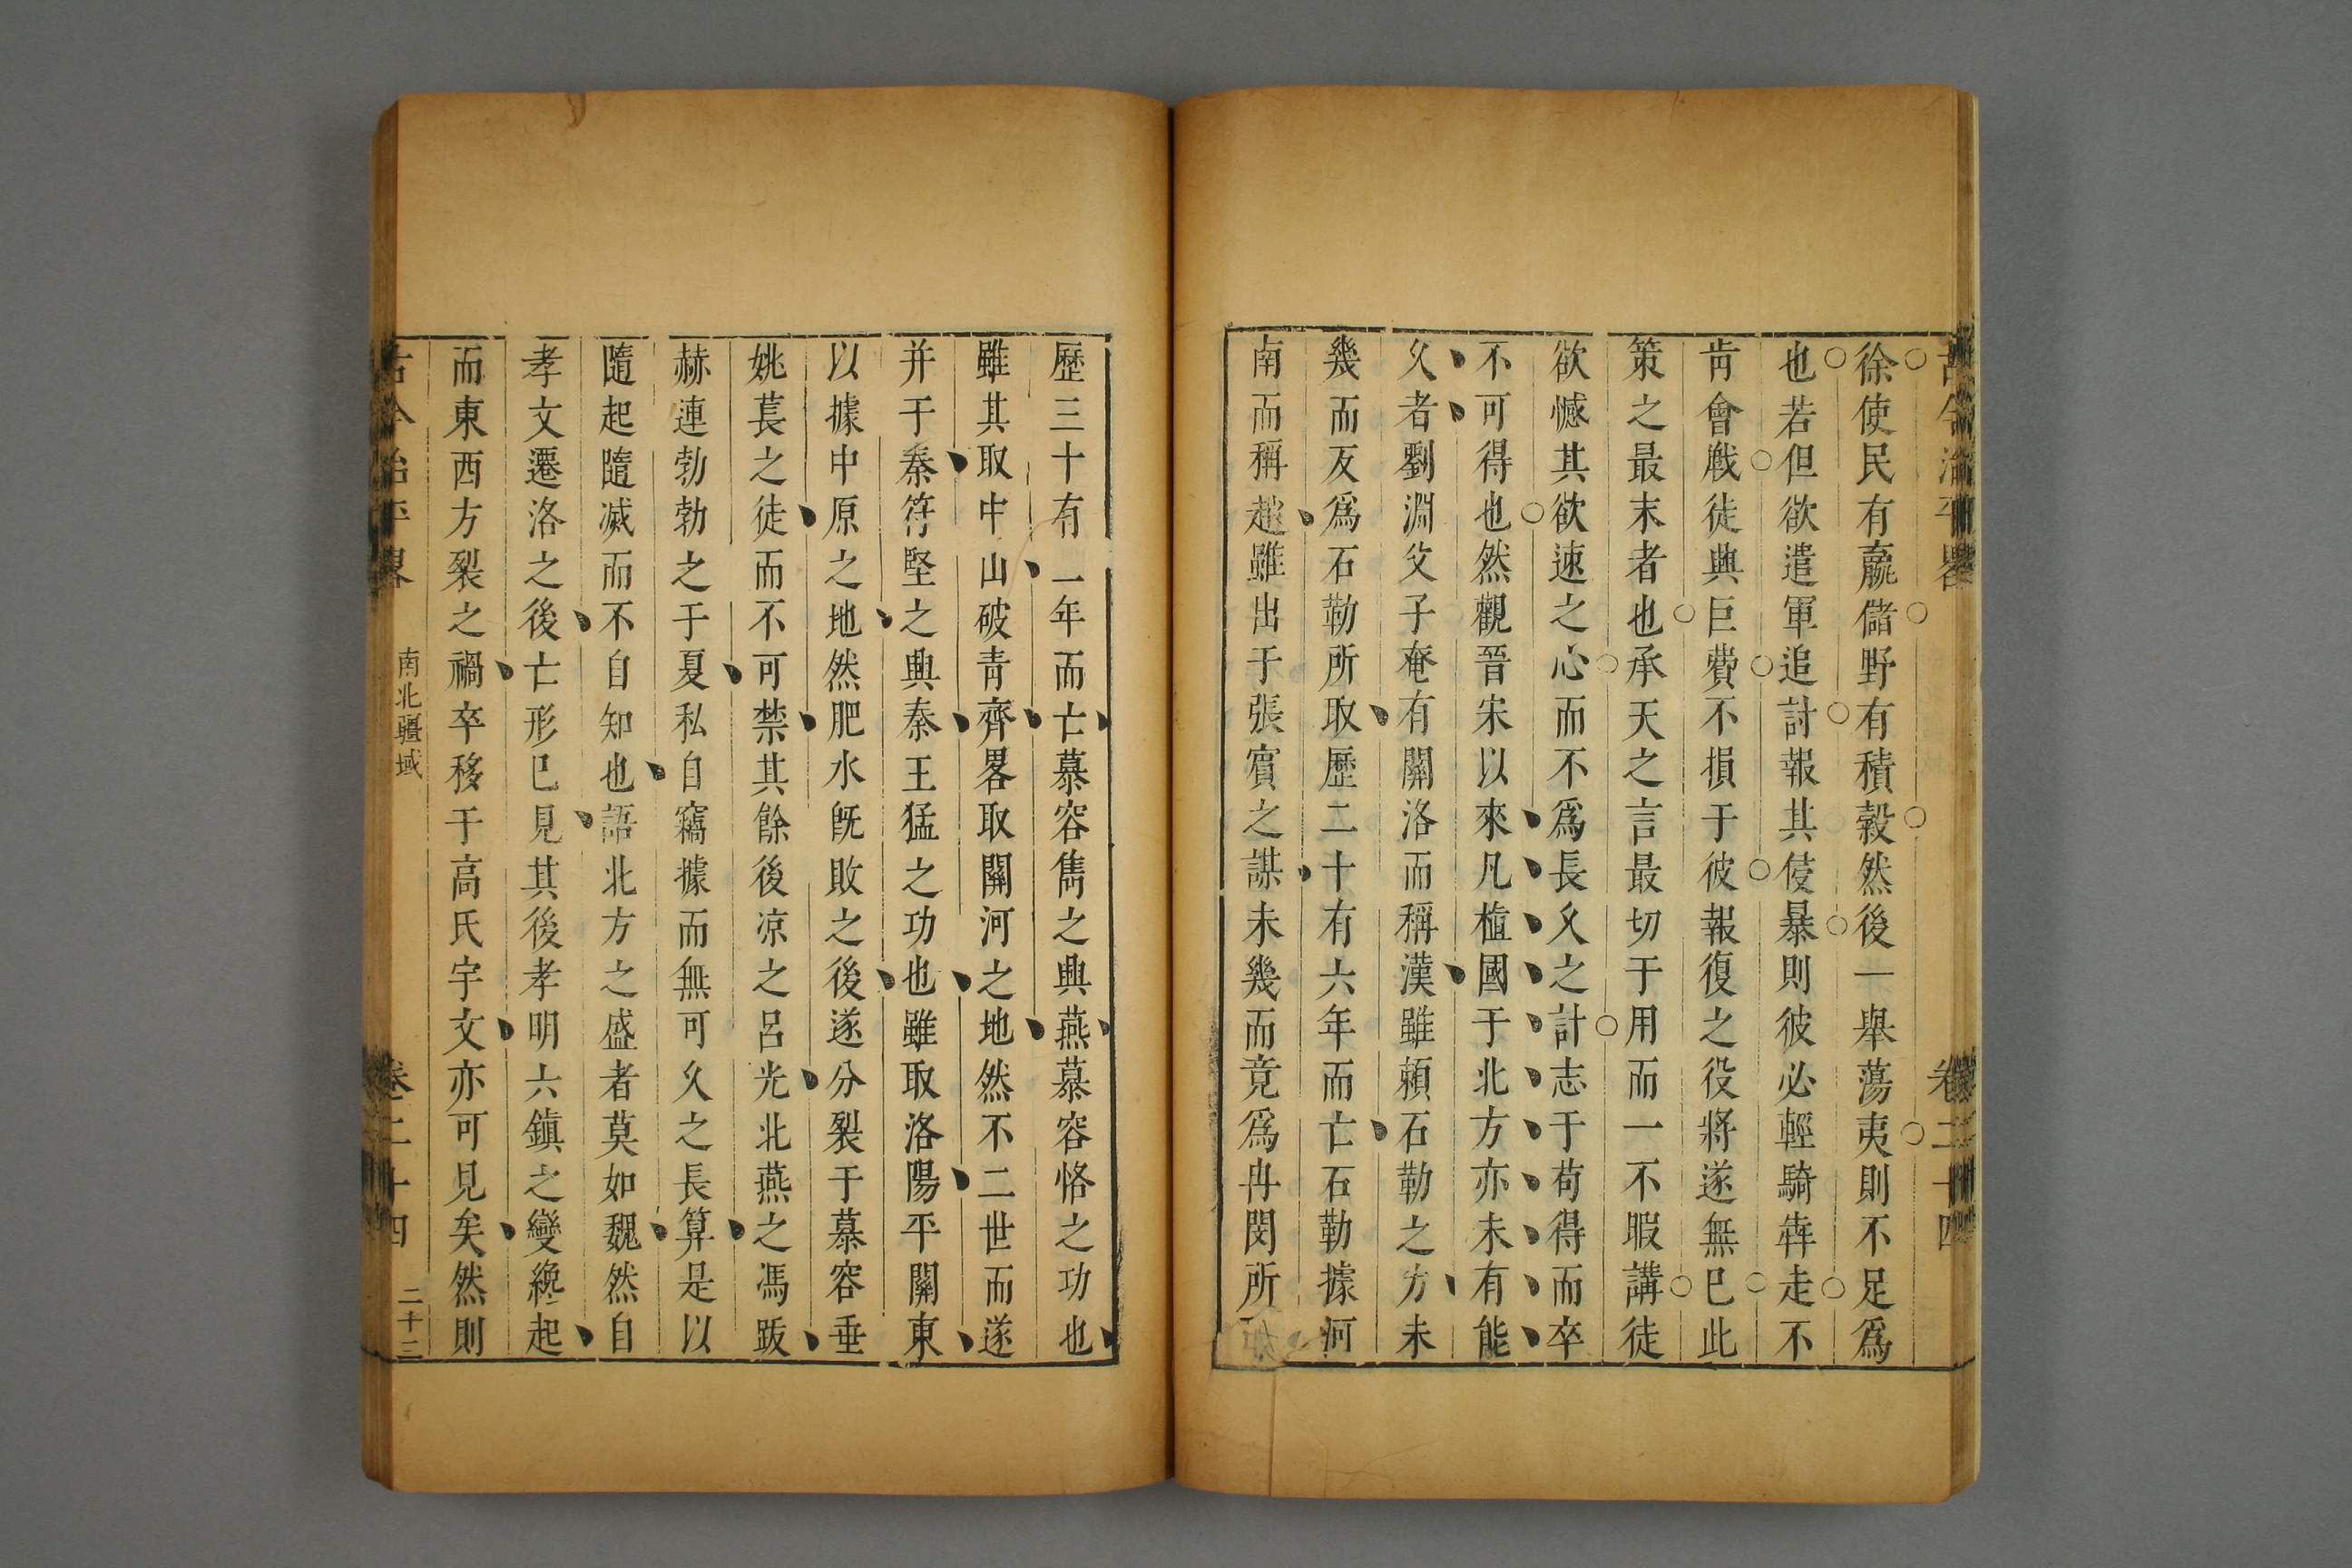 徐使民有贏儲野有積穀然後一舉蕩夷則不足爲
也若但欲遣軍追討報其侵暴則彼必輕騎犇走不
肯會戰徒興巨費不損于彼報復之役將遂無已此
策之最末者也承天之言最切于用而一不暇講徒
欲憾其欲速之心而不爲長久之計志于苟得而卒
不可得也然觀晉宋以來凡植國于北方亦未有能
久者劉淵父子奄有關洛而稱漢雖賴石勒之方未
幾而反爲石勒所取歷二十有六年而亡石勒據河
南而稱趙雖出于張賓之謀未幾而竟爲冉閔所
歷三十有一年而亡慕容雋之興燕慕容恪之功也
雖其取中山破靑齊畧取關河之地然不二世而遂
并于秦符堅之興秦王猛之功也雖取洛陽平關東
以據中原之地然肥水旣敗之後遂分裂于慕容垂
姚萇之徒而不可禁其餘後凉之呂光北燕之馮跋
赫連勃勃之于夏私自竊據而無可久之長算是以
隨起隨滅而不自知也語北方之盛者莫如魏然自
孝文遷洛之後亡形已見其後孝明六鎮之變纔起
而東西方裂之禍卒移于高氏宇文亦可見矣然則
古今治平畧
南北疆域
卷二十四
二十三